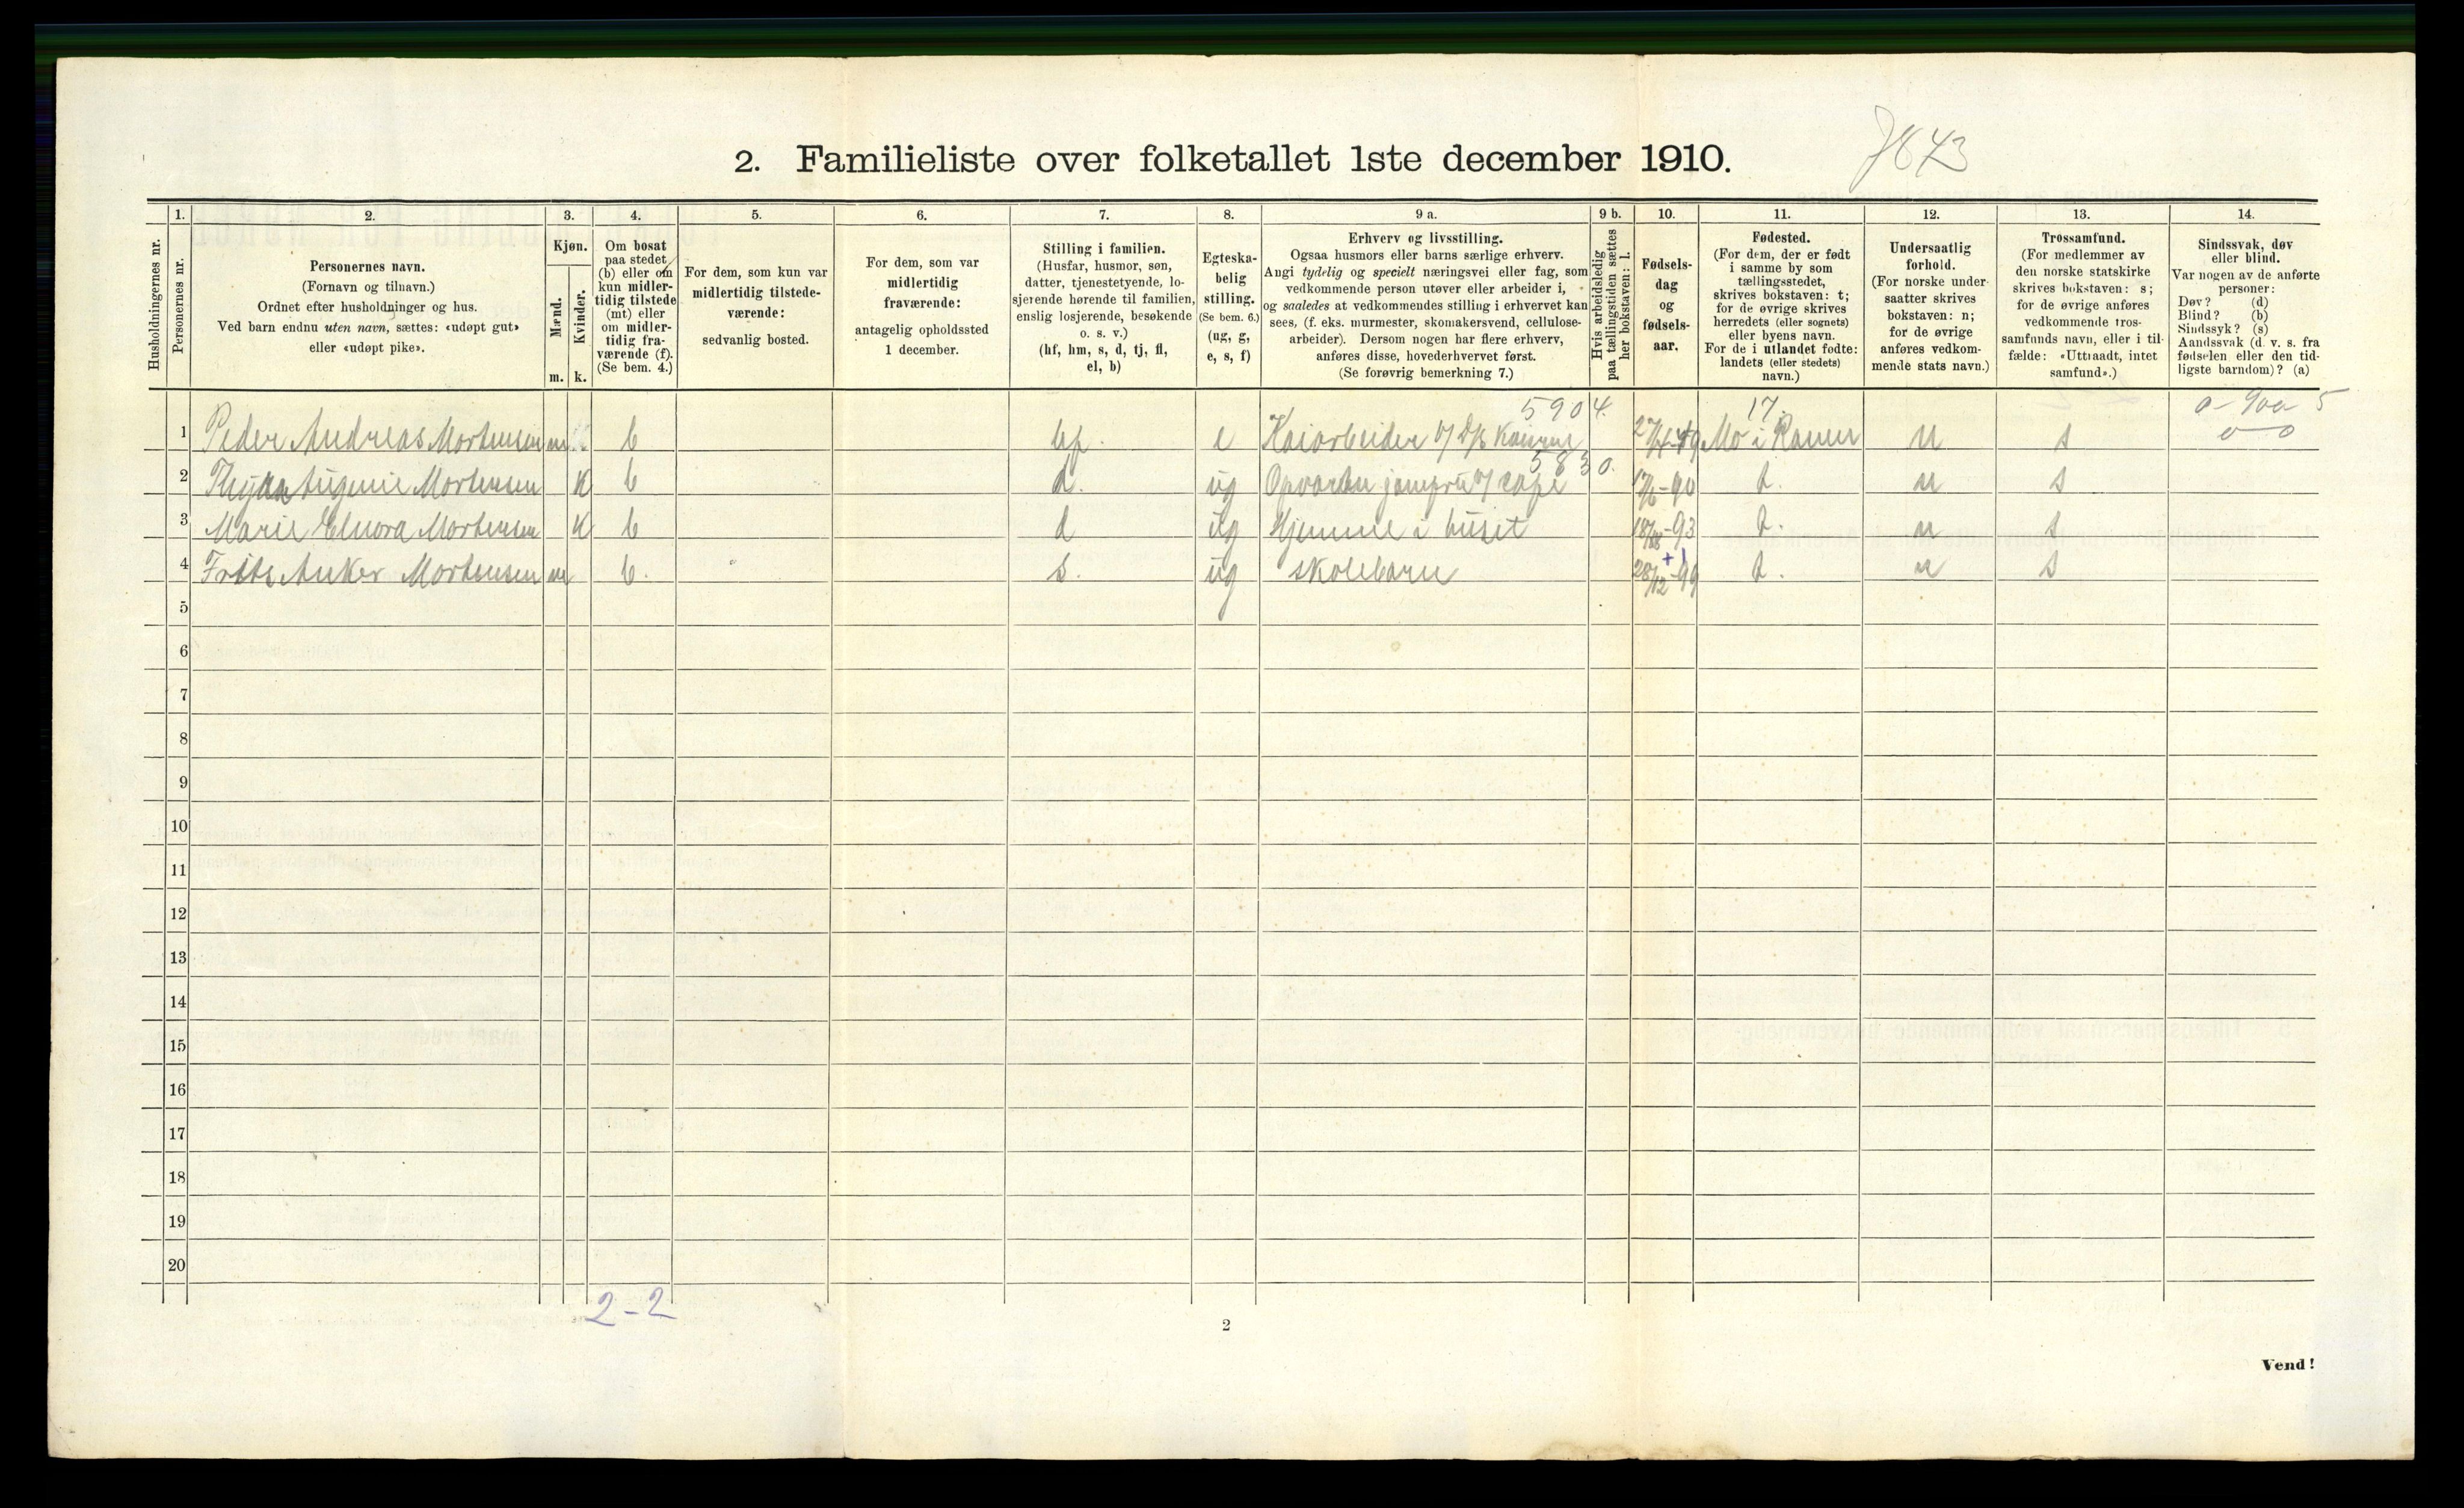 2. Familieliste over folketallet 1ste december 1910.
1. 2. 3. 4. 5. 6. 7. 8. 9 a. 9 b. 10. 11. 12. 13. 14.
Husholdningernes nr.
Personernes nr.
Personernes navn.
(Fornavn og tilnavn.)
Ordnet efter husholdninger og hus.
Ved barn endnu uten navn, sættes: «udøpt gut»
eller «udøpt pike».
Kjøn.
Mænd.
Kvinder.
m. k.
Om bosat
paa stedet
(b) eller om
kun midler-
tidig tilstede
(mt) eller
om midler-
tidig fra-
værende (f).
(Se bem. 4.)
For dem, som kun var
midlertidig tilstede-
værende:
sedvanlig bosted.
For dem, som var
midlertidig
fraværende:
antagelig opholdssted
1 december.
Stilling i familien.
(Husfar, husmor, søn,
datter, tjenestetyende, lo-
sjerende hørende til familien,
enslig losjerende, besøkende
o. s. v.)
(hf, hm, s, d, tj, fl,
el, b)
Egteska-
belig
stilling.
(Se bem. 6.)
(ug, g,
e, s, f)
Erhverv og livsstilling.
Ogsaa husmors eller barns særlige erhverv.
Angi tydelig og specielt næringsvei eller fag, som
vedkommende person utøver eller arbeider i,
og saaledes at vedkommendes stilling i erhvervet kan
sees, (f. eks. murmester, skomakersvend, cellulose-
arbeider). Dersom nogen har flere erhverv,
anføres disse, hovederhvervet først.
(Se forøvrig bemerkning 7.)
Hvis arbeidsledig
paa tællingstiden sættes
her bokstaven: l.
Fødsels-
dag
og
fødsels-
aar.
Fødested.
(For dem, der er født
i samme by som
tællingsstedet,
skrives bokstaven: t;
for de øvrige skrives
herredets (eller sognets)
eller byens navn.
For de i utlandet fødte:
landets (eller stedets)
navn.)
Undersaatlig
forhold.
(For norske under-
saatter skrives
bokstaven: n;
for de øvrige
anføres vedkom-
mende stats navn.)
Trossamfund.
(For medlemmer av
den norske statskirke
skrives bokstaven: s;
for de øvrige anføres
vedkommende tros-
samfunds navn, eller i til-
fælde: «Uttraadt, intet
samfund».)
Sindssvak, døv
eller blind.
Var nogen av de anførte
personer:
Døv? (d)
Blind? (b)
Sindssyk? (s)
Aandssvak (d. v. s. fra
fødselen eller den tid-
ligste barndom)? (a)
5904. 17.
1 Peder Andreas Mortensen m b hf. e Kaiarbeider Mo i Ranen n s
5830.
2 Augenie Mortensen k b d. ug Opvartn jomfru v/ cafe -90 t. n s
3 Marie Elnora Mortensen k b d ug Hjemme i huset -93 t. n s
+1
4 Frits Anker Mortensen m b. s. ug skolebarn 28/12-99 t. n s
5
6
7
8
9
10
11
12
13
14
15
16
17
18
19
20
2-2
2
Vend!